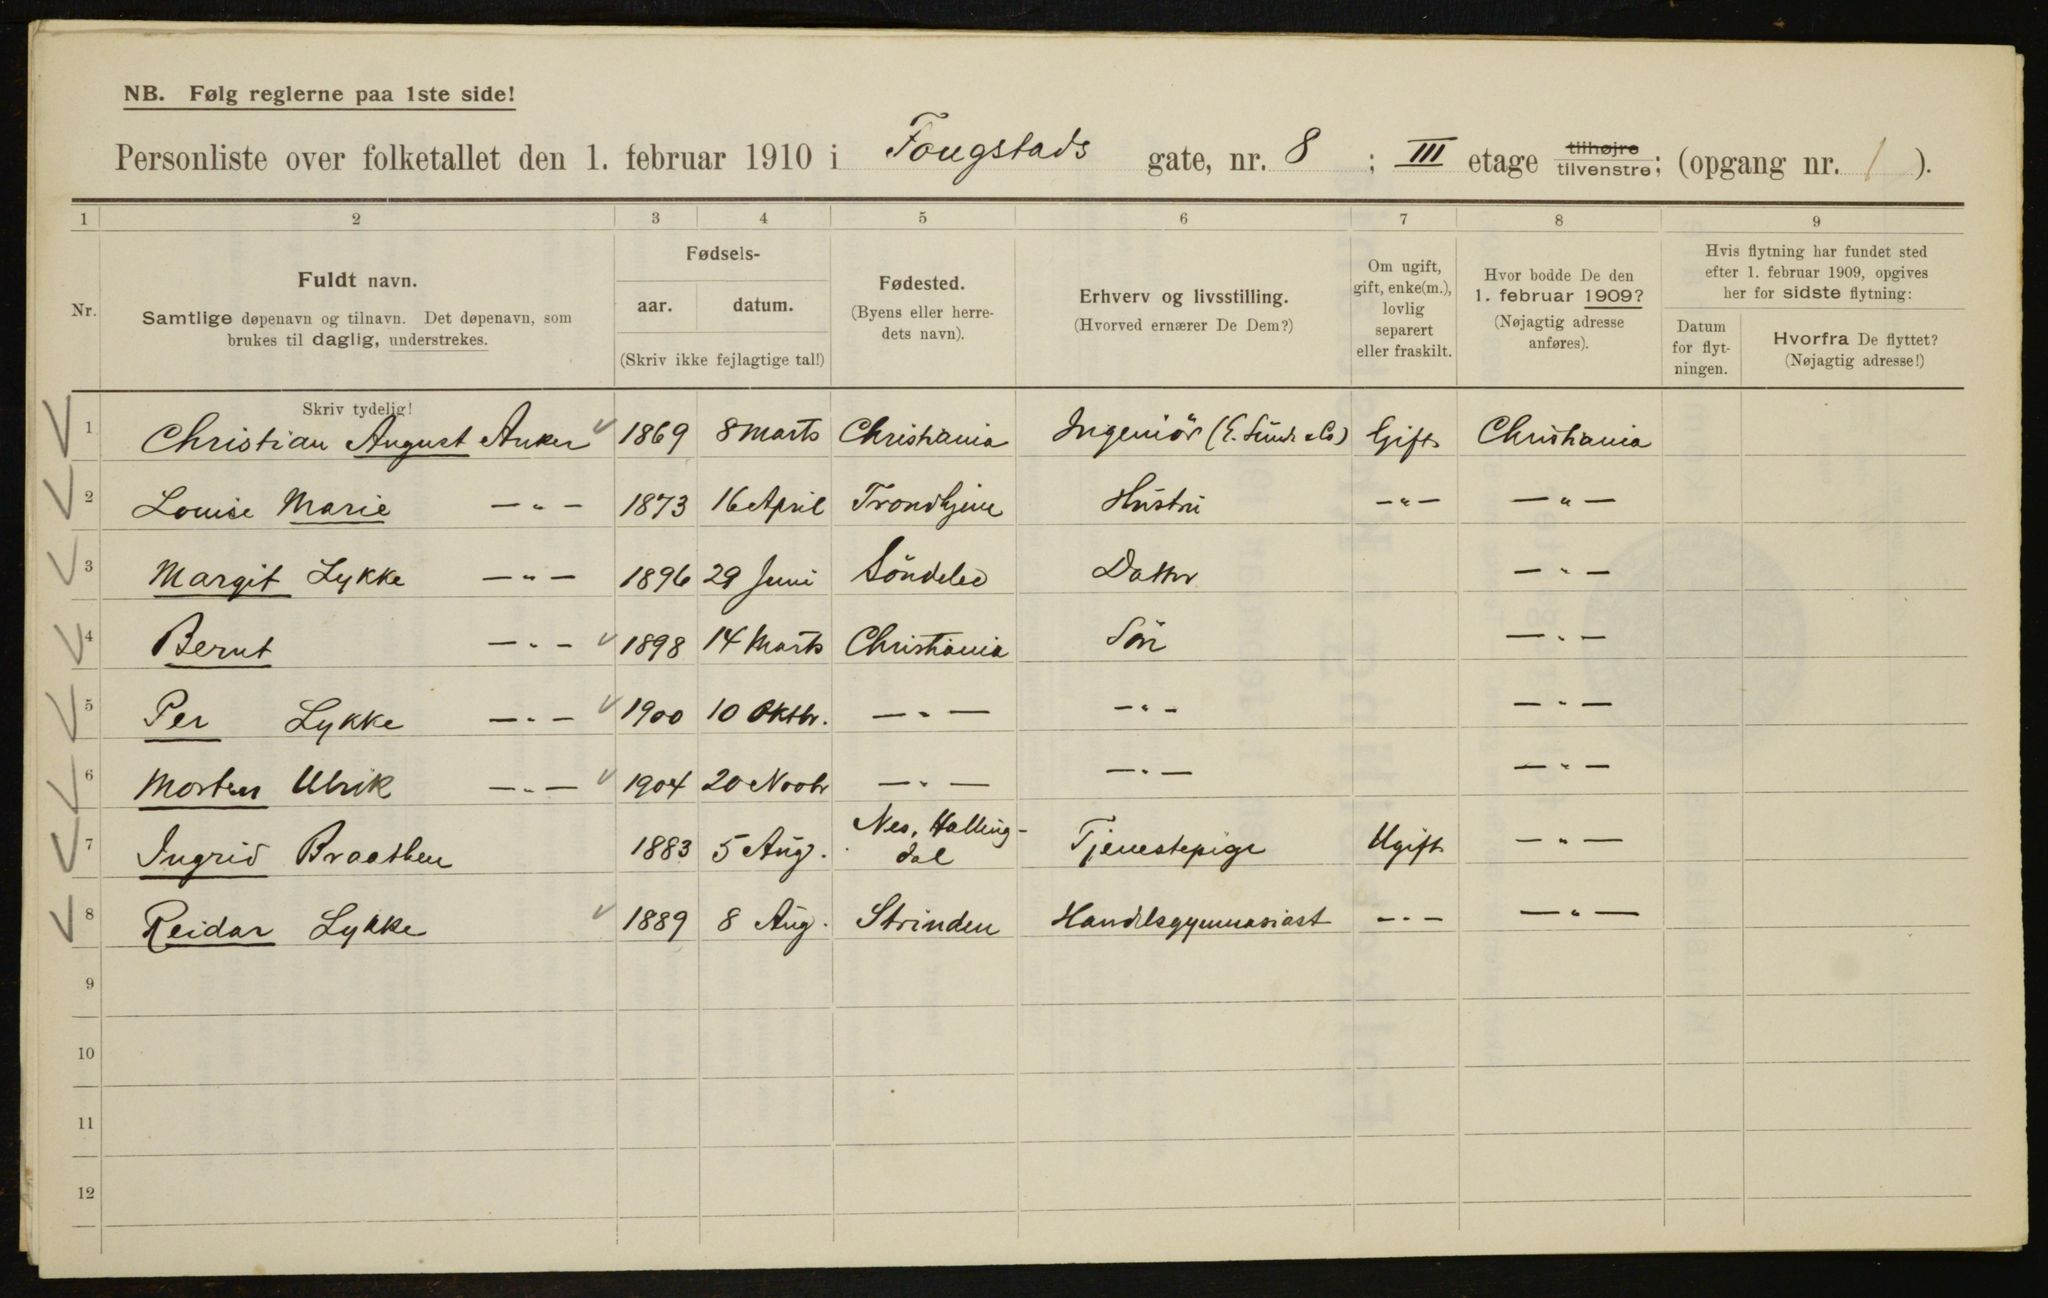 NB. Følg reglerne paa 1ste side!
Personliste over folketallet den 1. februar 1910 i Fougstads gate, nr. 8 ; III etage tilhøjre tilvenstre; (opgang nr. 1 ).
1 2 3 4 5 6 7 8 9
Nr.
Fuldt navn.
Samtlige døpenavn og tilnavn. Det døpenavn, som
brukes til daglig, understrekes.
Fødsels-
aar. datum.
(Skriv ikke fejlagtige tal!)
Fødested.
(Byens eller herre-
dets navn).
Erhverv og livsstilling.
(Hvorved ernærer De Dem?)
Om ugift,
gift, enke(m.),
lovlig
separert
eller fraskilt.
Hvor bodde De den
1. februar 1909?
(Nøjagtig adresse
anføres).
Hvis flytning har fundet sted
efter 1. februar 1909, opgives
her for sidste flytning:
Datum
for flyt-
ningen.
Hvorfra De flyttet?
(Nøjagtig adresse!)
Skriv tydelig!
1 Christian August Anker 1869 8 Marts Christiania Ingeniör (E. Sunde & Co) Gift Christiania
2 Louise Marie —„— 1873 16 April Trondhjem Hustru —„— —„—
3 Margit Lykke —„— 1896 29 Juni Söndeled Datter —„—
4 Bernt —„— 1898 14 Marts Christiania Sön —„—
5 Per Lykke —„— 1900 10 Oktbr. —„— —„— —„—
6 Morten Ulrik —„— 1904 20 Novbr —„— —„— —„—
7 Ingrid Braathen 1883 5 Aug. Nes, Halling-
dal Tjenestepige Ugift —„—
8 Reidar Lykke 1889 8 Aug. Strinden Handelsgymnasiast —„— —„—
9
10
11
12